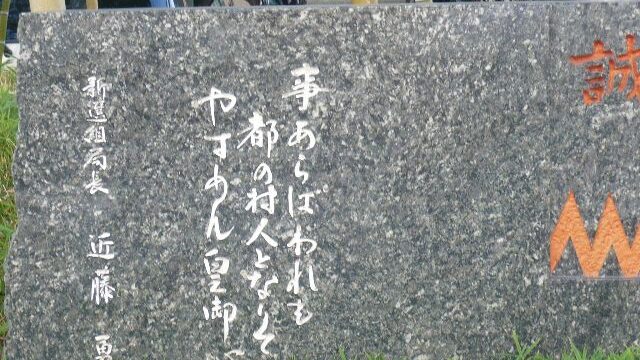 誠
事あらばわれも
都の村人となりて
やすめん皇御
新選組局長 近藤 勇